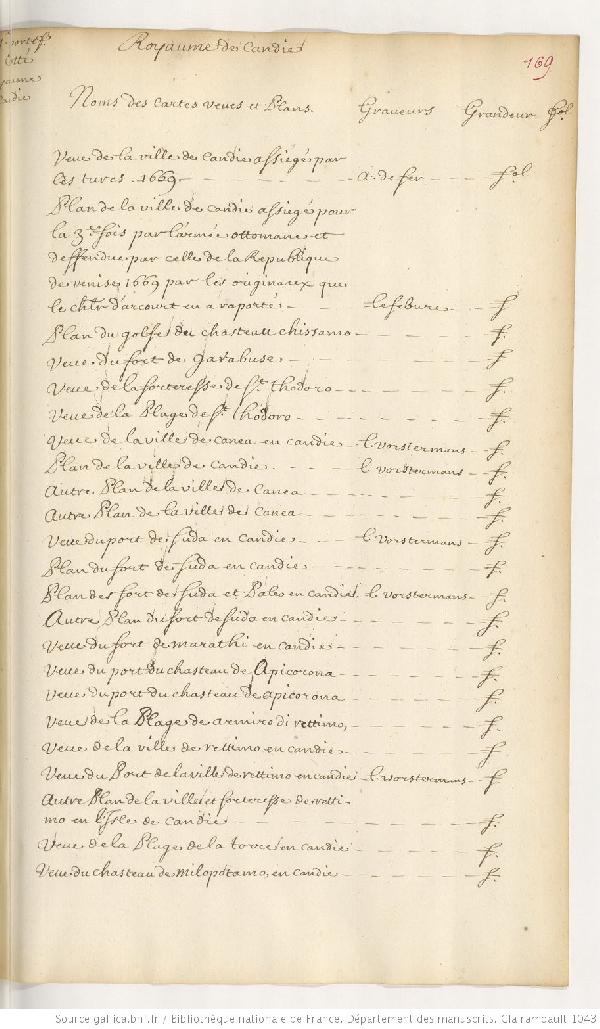 Royaume de Candie
169
Noms des cartes veues et Plans. Graveurs Grandeur fol.
Veue de la ville de candie assiegé par
les turcs .1669 - - - a. de fer - - fol
Plan de la ville de candie assiegé pour
la 3.e fois par l'armée ottomane et
deffendue par celle de la Republique
de venise 1669 par les originaux que
le cher. d'arcourt en a raportés - - lefebure - f
Plan du golfe du chasteau chissamo - - - f.
Veue du fort de garabuse - - - f
Veue de la forteresse de St. thodoro - - - f.
Veue de la Plage de St. thodoro - - - f.
Veue de la ville de canea en candie - l. vorstermans - f.
Plan de la ville de candie - - l. vorstermans - f.
Autre Plan de la ville de Canea - - - f.
Autre Plan de la ville de Canea - - - f.
Veue du port de suda en candie - l. vorstermans - f.
Plan du fort de suda en candie - - - f.
Plan des fort de suda et Pales en candie l. vorstermans - f.
Autre Plan du fort de suda en candie - - - f.
Veue du fort de marathi en candie - - - f.
Veue du port du chasteau de Apicorona - - - f.
Veue du port du chasteau de apicorona - - - f.
Veue de la Plage de armiro di rettimo, - - - f.
Veue de la ville de rettimo en candie - - - f.
Veue du Port de la ville de rettimo en candie - l. vorstermans - f
Autre Plan de la ville et forteresse de retti-
mo en l'Isle de candie - - - f.
Veue de la Plage de la torre en candie - - - f.
Veue du chasteau de milopotamo, en candie - - - f.
Source gallica.bnf.fr / Bibliothèque nationale de France. Département des manuscrits. Clairambault 1043